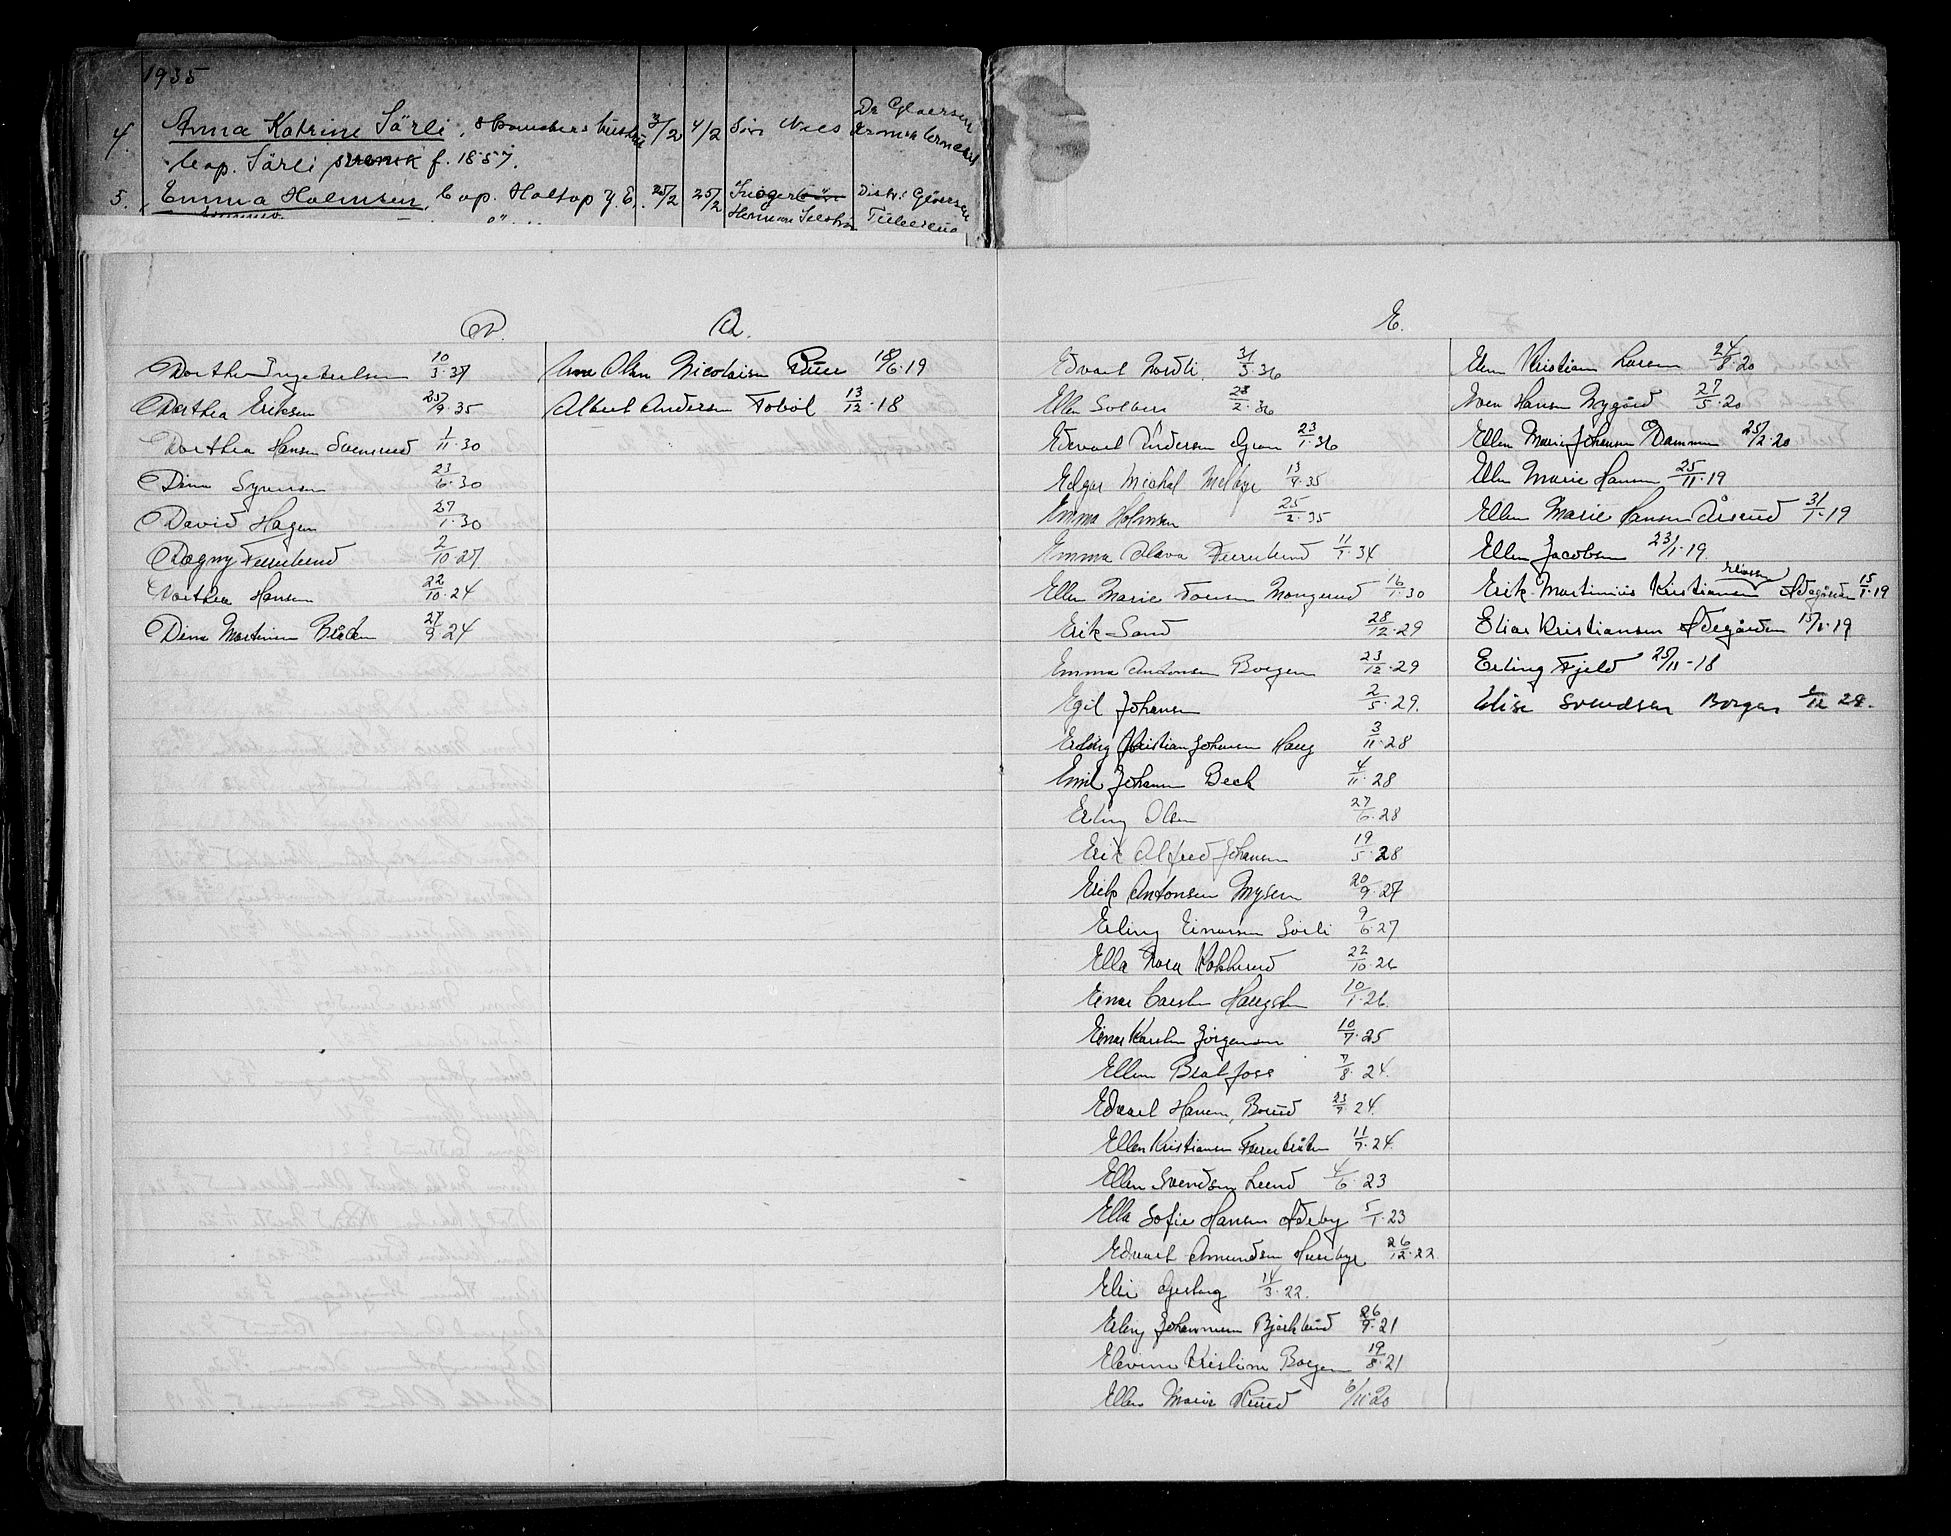 1935
4. Anna Katrine Särli, 3/2 4/2 Dr Gloersen
Cap. Särli f. 1857.
5. Emma Holmsen, Cap. Holtop 25/2 25/2 Distr: Gloersen
D. A. E.
Dorthe Ingebrelsen 10/3·37
Dorthea Eriksen 25/9·35
Dorthea Hansen Svensrud 1/11·30
Dina Syrensen 23/6·30
David Hagen 27/1·30
Dagny Furulund 2/10·27
Dorthea Hansen 22/10·24
Dina Martinsen Bråten 27/9·24
Anna Olsen Nicolaisen Ruu 18/6·19
Albert Andersen Tobøl 13/12·18
Edvart Nordli 31/3·36
Ellen Solberg 28/2·36
Edvart Andersen Gran 23/1·36
Edgar Michal Melbye 13/9·35
Emma Holmsen 25/2·35
Emma Olava Furulund 11/1·34
Ellen Marie Mongrud 16/1·30
Erik Sand 28/12·29
Emma Antonsen Borgen 23/12·29
Egil Johansen 2/5·29.
Erling Kristian Johansen Haug 3/11·28
Emil Johansen Beck 4/11·28
Erling Olsen 27/6·28
Erik Alfred Johansen 19/5·28
Erik Antonsen Mysen 20/9·27
Erling Einarsen Sørli 9/6·27
Ella Nora Kokkerud 22/10·26
Einar Carsten Haugsten 10/1·26.
Einar Karsten Jörgensen 10/7·25
Ellen Bratfoss 7/8·24.
Edvart Hansen, Borud 23/7·24.
Ellen Kristiansen Furubråten 11/7·24.
Ellen Svendsen Lund 4/6·23
Ella Sofie Hansen Ødeby 5/1·23
Edvart Amundsen Huseby 26/12·22.
Elise Gjesberg 14/3·22.
Erling Johannesen Bjerklund 26/9·21
Elevine Kristine Borgen 19/8·21
Ellen Marie Ruud 6/11·20
Elen Kristiansen Larsen 24/8·20
Even Hansen Nygård 27/5·20
Ellen Marie Johansen Dammen 25/2·20
Ellen Marie Hansen 25/11·19
Ellen Marie Hansen Åsrud 31/1·19
Ellen Jacobsen 23/1·19.
Erik Martinius Kristiansen Ødegården 15/1·19
Elias Kristiansen Ødegården 15/1·19
Erling Fjeld 25/11-18
Elise Svendsen Borgen 6/12 28.